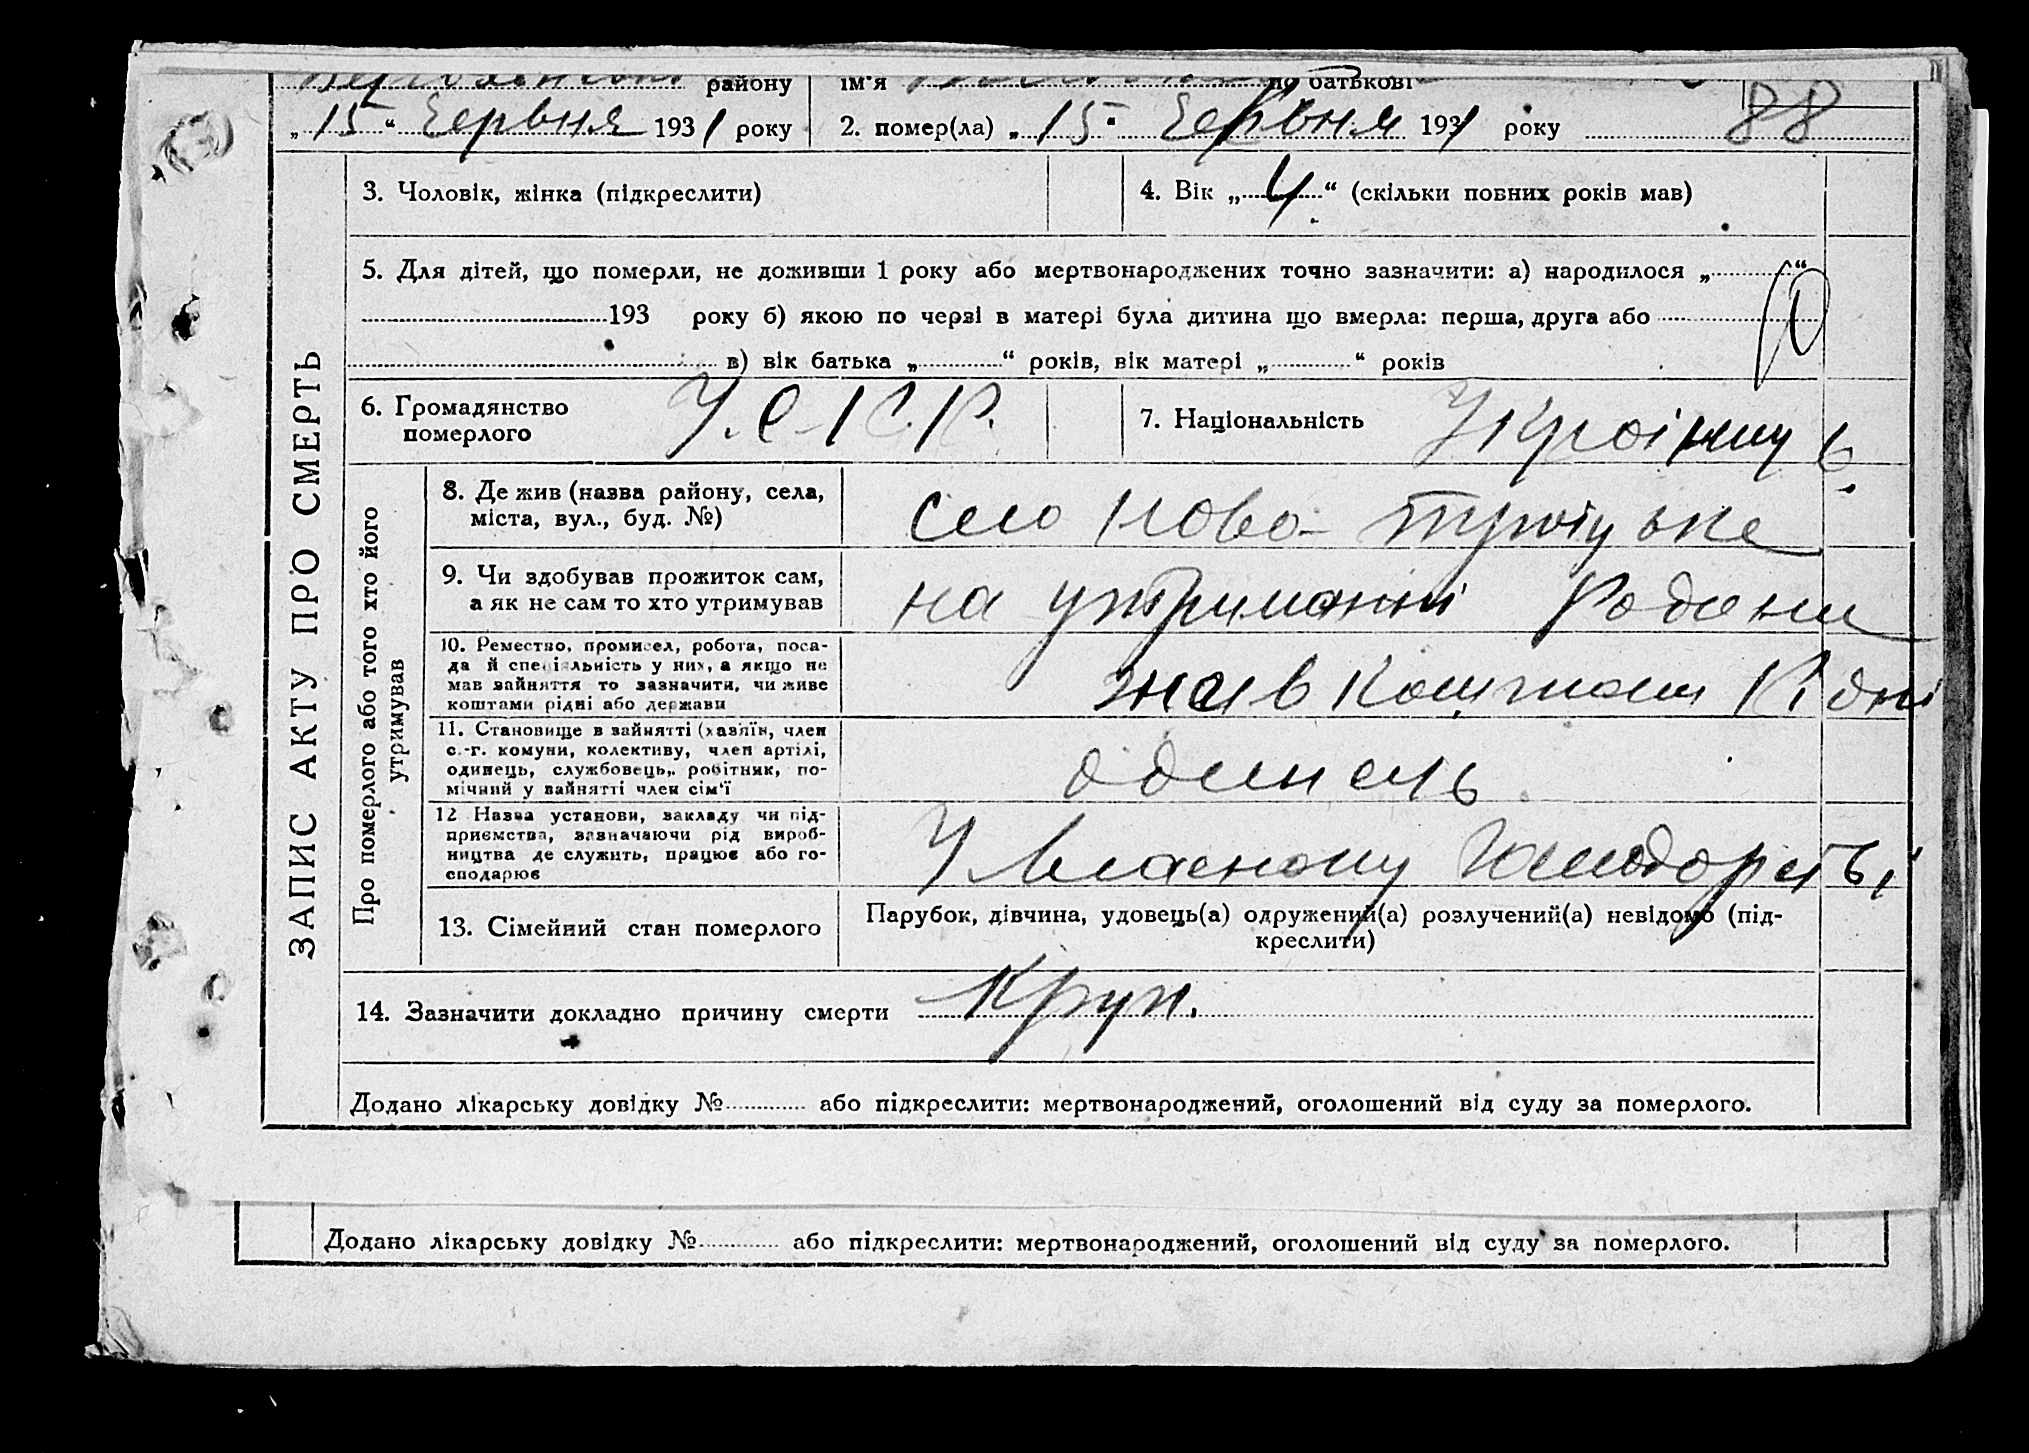 району ім'я по батькові
„15“ Червня 1931 року 2. помер(ла) „15“ Червня 1931 року 88
ЗАПИС АКТУ ПРО СМЕРТЬ
3. Чоловік, жінка (підкреслити) 4. Вік „4“ (скільки повних років мав)
5. Для дітей, що померли, не доживши 1 року або мертвонароджених точно зазначити: а) народилося „ “
193 року б) якою по черзі в матері була дитина що вмерла: перша, друга або
в) вік батька „ “ років, вік матері „ “ років
6. Громадянство померлого У.С.Р.Р. 7. Національність Українець
Про померлого або того хто його утримував
8. Де жив (назва району, села,
міста, вул., буд. №) село Ново-
9. Чи здобував прожиток сам,
а як не сам то хто утримував на утриманні Родени
10. Ремество, промисел, робота, поса-
да й спеціяльність у них, а якщо не
мав зайняття то зазначити, чи живе
коштами рідні або держави жив коштами Рідні
11. Становище в зайнятті (хазяїн, член
с.-г. комуни, колективу, член артілі,
одинець, службовець, робітник, по-
мічний у зайнятті член сім'ї одинець
12 Назва установи, закладу чи під-
приємства, зазначаючи рід вироб-
ництва де служить, працює або го-
сподарює У власному господарстві
13. Сімейний стан померлого Парубок, дівчина, удовець(а) одружений(а) розлучений(а) невідомо (під-
креслити)
14. Зазначити докладно причину смерти Круп.
Додано лікарську довідку № або підкреслити: мертвонароджений, оголошений від суду за померлого.
Додано лікарську довідку № або підкреслити: мертвонароджений, оголошений від суду за померлого.